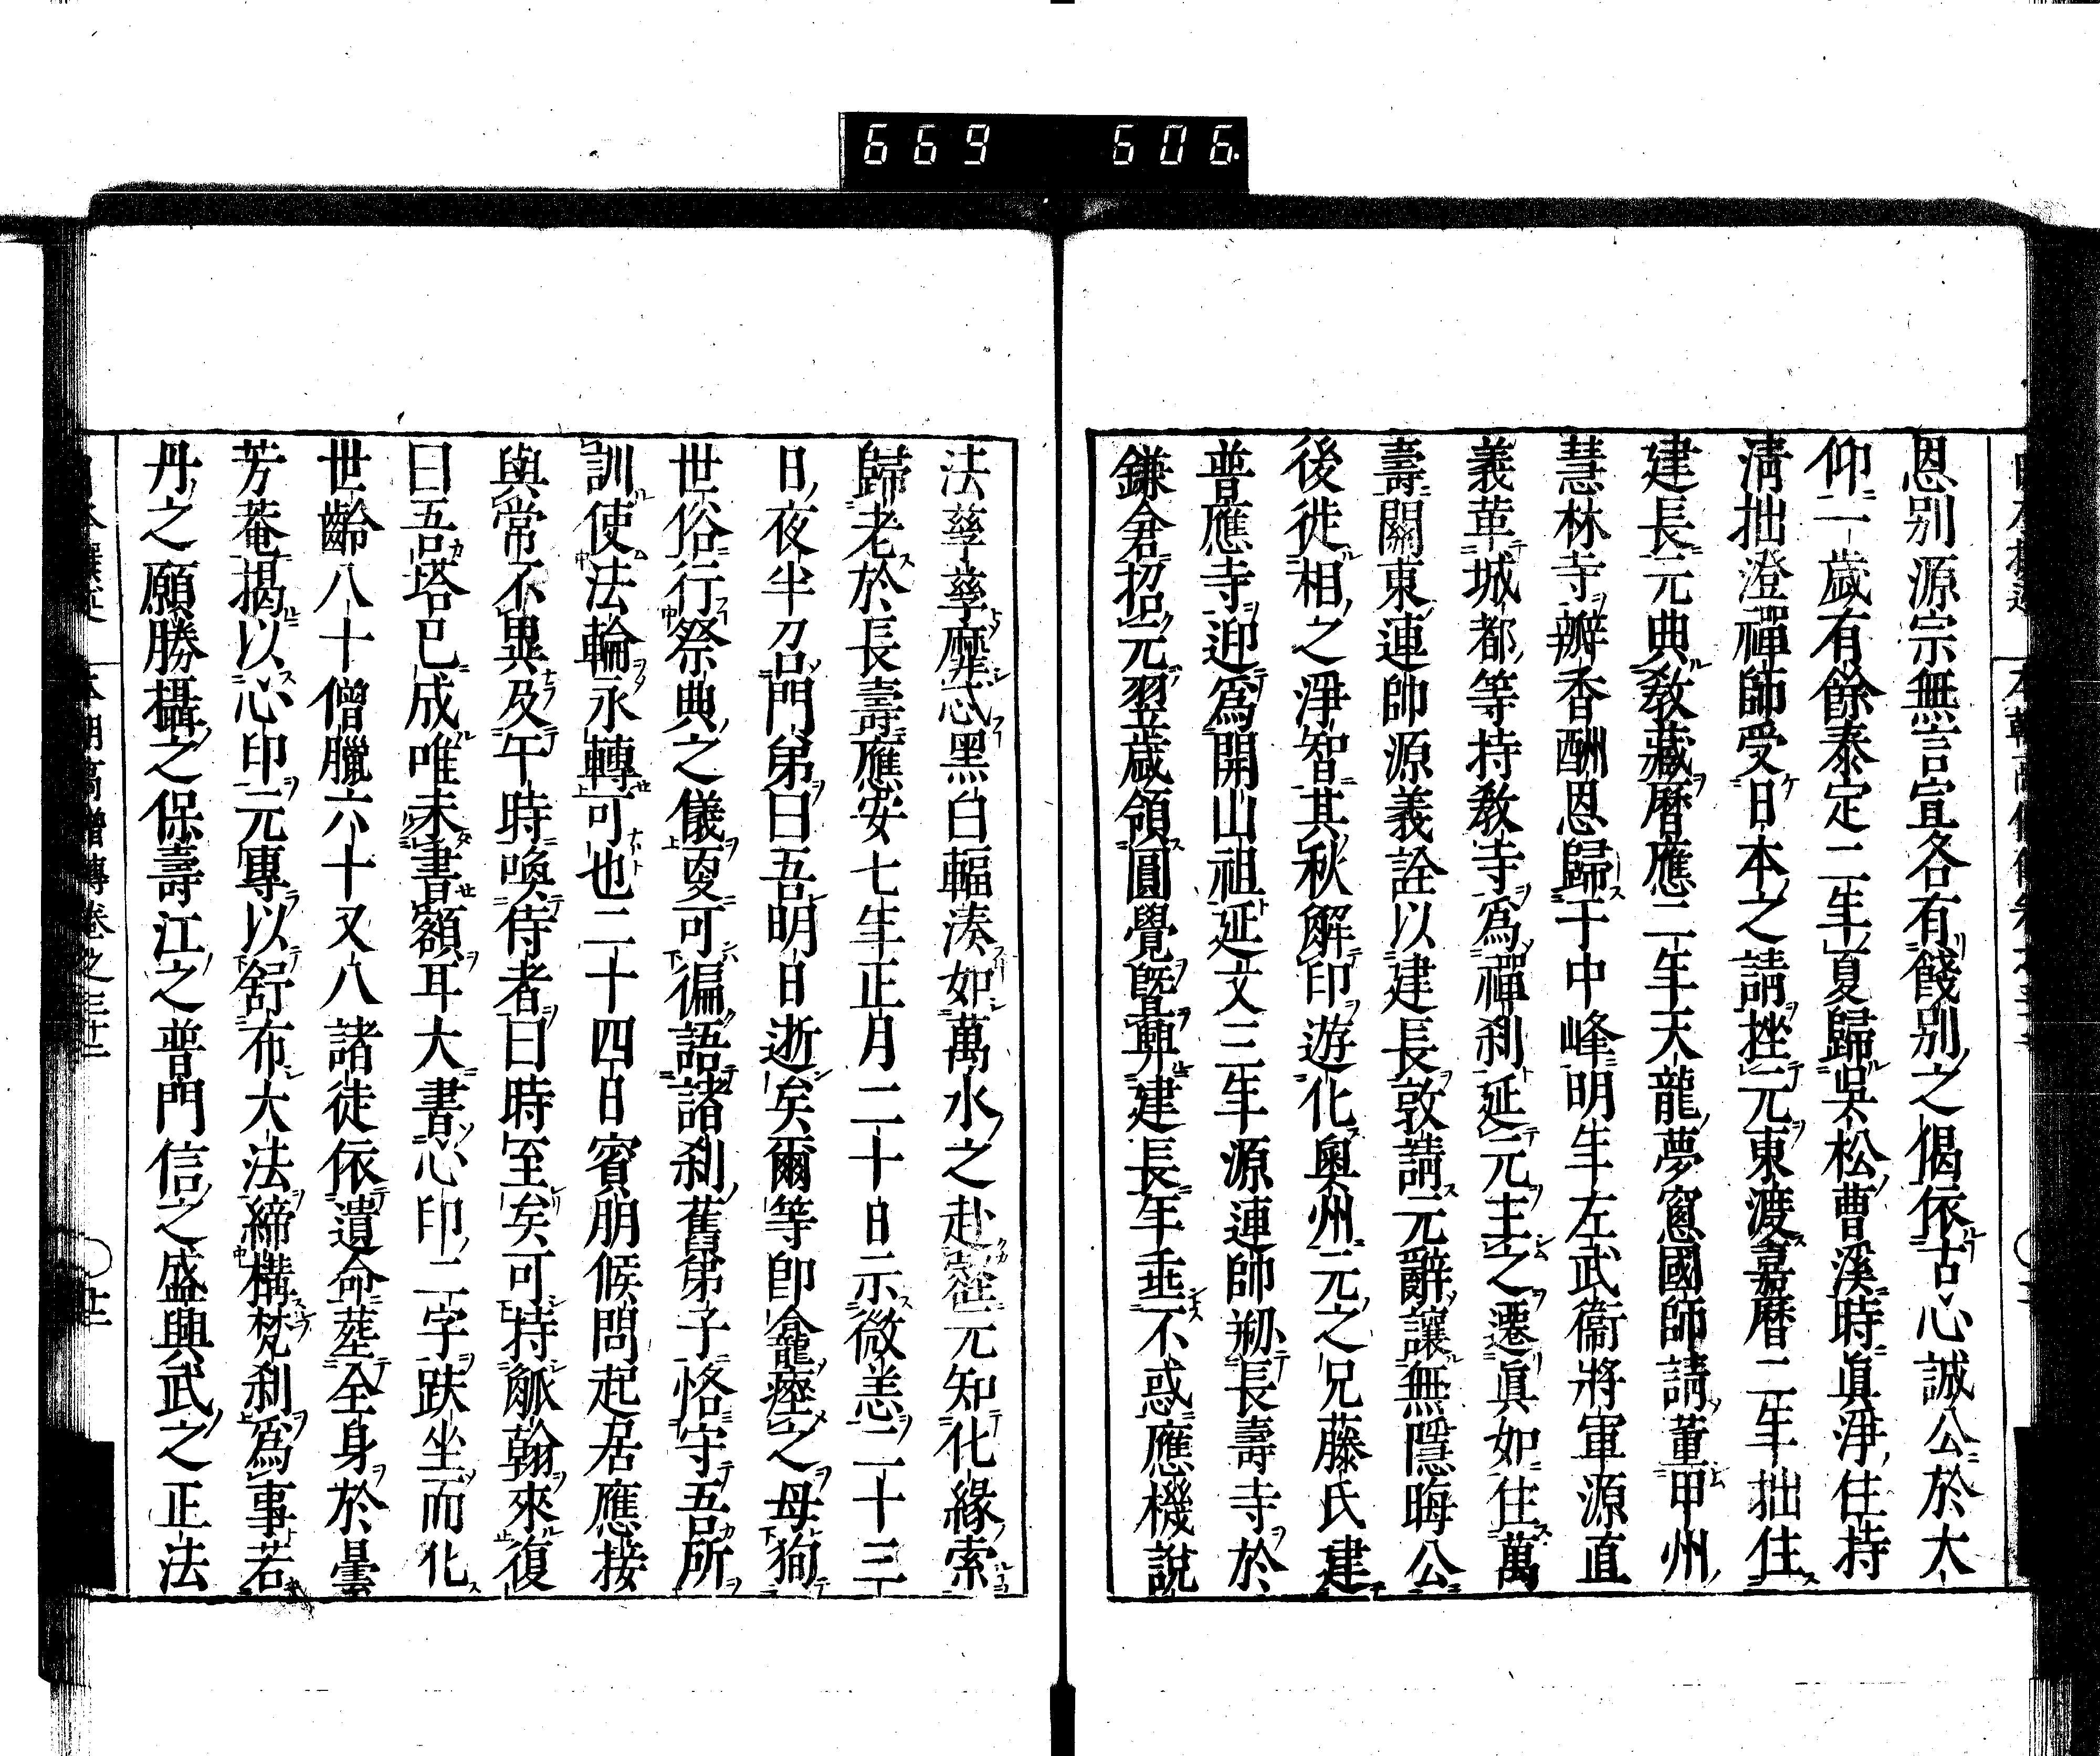 669 606.
恩別源宗無言宜各有餞別之偈依古心誠公於大
仰二歲有餘泰定二年夏歸吳松曹溪時眞淨住持
淸拙澄禪師受日本之請拉元東渡嘉曆二年拙住
建長元典敎藏曆應二年天龍夢窓國師請董甲州
慧林寺瓣香酬恩歸于中峰明年左武衞將軍源直
義革城都等持敎寺爲禪刹延元主之遷眞如住萬
壽關東連帥源義詮以建長敦請元辭讓無隱晦公
後徙相之淨智其秋解印遊化奧州元之兄藤氏建
普應寺迎爲開山祖延文三年源連帥剏長壽寺於
鎌倉招元翌歲領圓覺曁董建長年垂不惑應機說
法孳孳靡忒黑白輻湊如萬水之赴壑元知化緣索
歸老於長壽應安七年正月二十日示微恙二十三
日夜半召門弟曰吾明日逝矣爾等卽龕瘞之母狥
世俗行祭典之儀㪅可徧語諸刹舊弟子恪守吾所
訓使法輪永轉可也二十四日賓朋候問起居應接
與常不異及午時喚侍者曰時至矣可持觚翰來復
曰吾塔已成唯未書額耳大書心印二字趺坐而化
世齡八十僧臘六十又八諸徒依遺命葬全身於曇
芳菴揭以心印元專以舒布大法締構梵刹爲事若
丹之願勝攝之保壽江之普門信之盛興武之正法
本朝高僧傳卷之三十